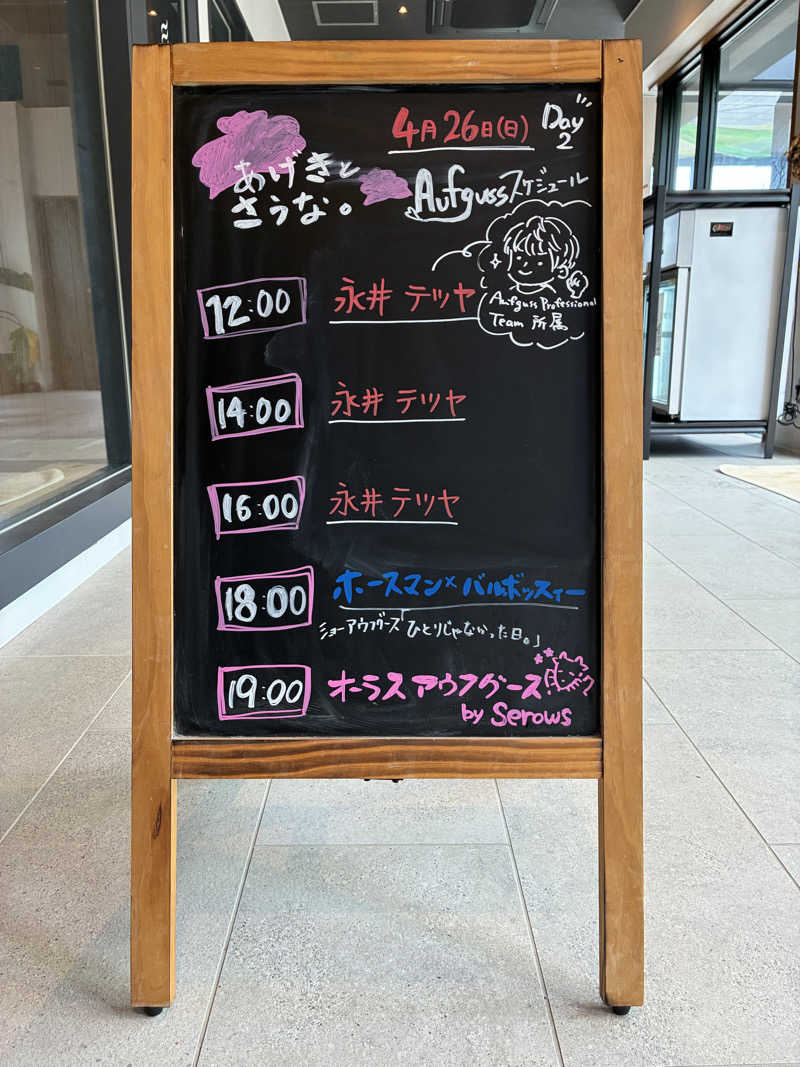 4月26日(日) Day 2
あげきと
さうな。
Aufgussスケジュール
12:00 永井 テツヤ
Aufguss Professional
Team 所属
14:00 永井 テツヤ
16:00 永井 テツヤ
18:00 ホースマン×バルボッスィー
ショーアウフグース「ひとりじゃなかった日。」
19:00 オーラス アウフグース
by Serows